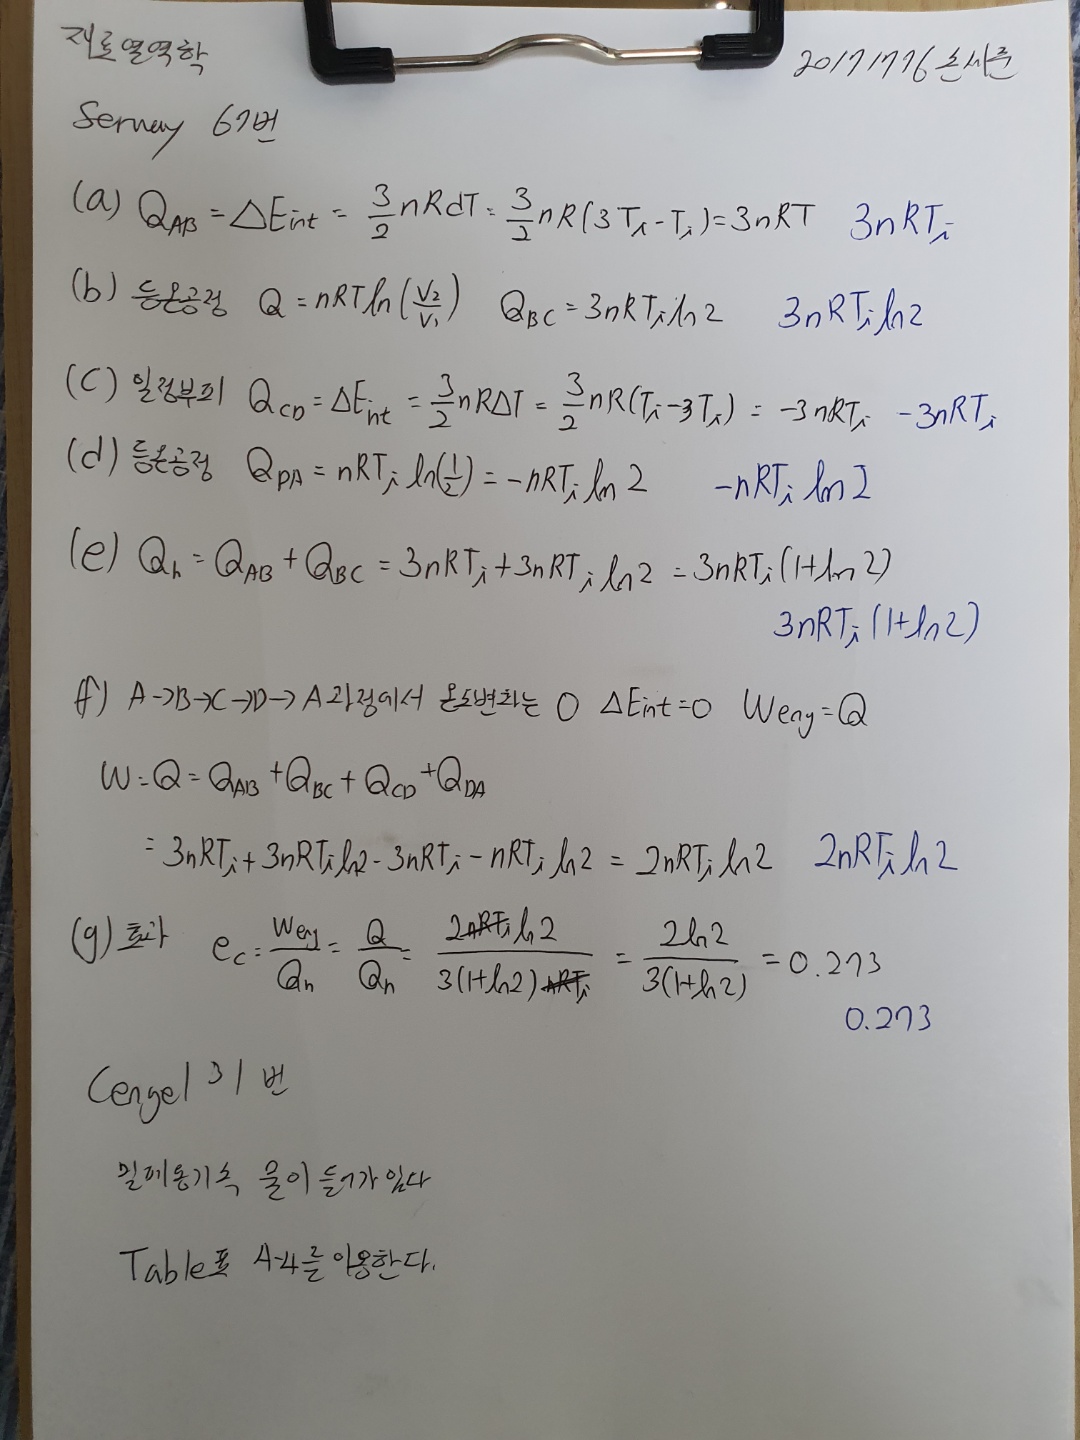 재료열역학
20171776 손서준
Serway 67번
(a) Q_AB = ΔEint = 3/2 nRdT = 3/2 nR(3Ti-Ti) = 3nRT 3nRTi
(b) 등온공정 Q = nRT ln(V2/V1) Q_BC = 3nRTi ln2 3nRTi ln2
(C) 일정부피 Q_CD = ΔEint = 3/2 nRΔT = 3/2 nR(Ti-3Ti) = -3nRTi -3nRTi
(d) 등온공정 Q_DA = nRTi ln(1/2) = -nRTi ln 2 -nRTi ln 2
(e) Qh = Q_AB + Q_BC = 3nRTi + 3nRTi ln2 = 3nRTi(1+ln 2)
3nRTi(1+ln2)
f) A→B→C→D→A 과정에서 온도변화는 0 ΔEint=0 Weng=Q
W=Q=Q_AB+Q_BC+Q_CD+Q_DA
= 3nRTi+3nRTi ln2-3nRTi-nRTi ln2 = 2nRTi ln2 2nRTi ln2
(g) 효과 ec = Weng/Qh = Q/Qh = 2nRTi ln2/3(1+ln2)nRTi = 2ln2/3(1+ln2) = 0.273
0.273
Cengel 31번
밀폐용기속 물이 들어가 있다
Table표 A-4를 이용한다.